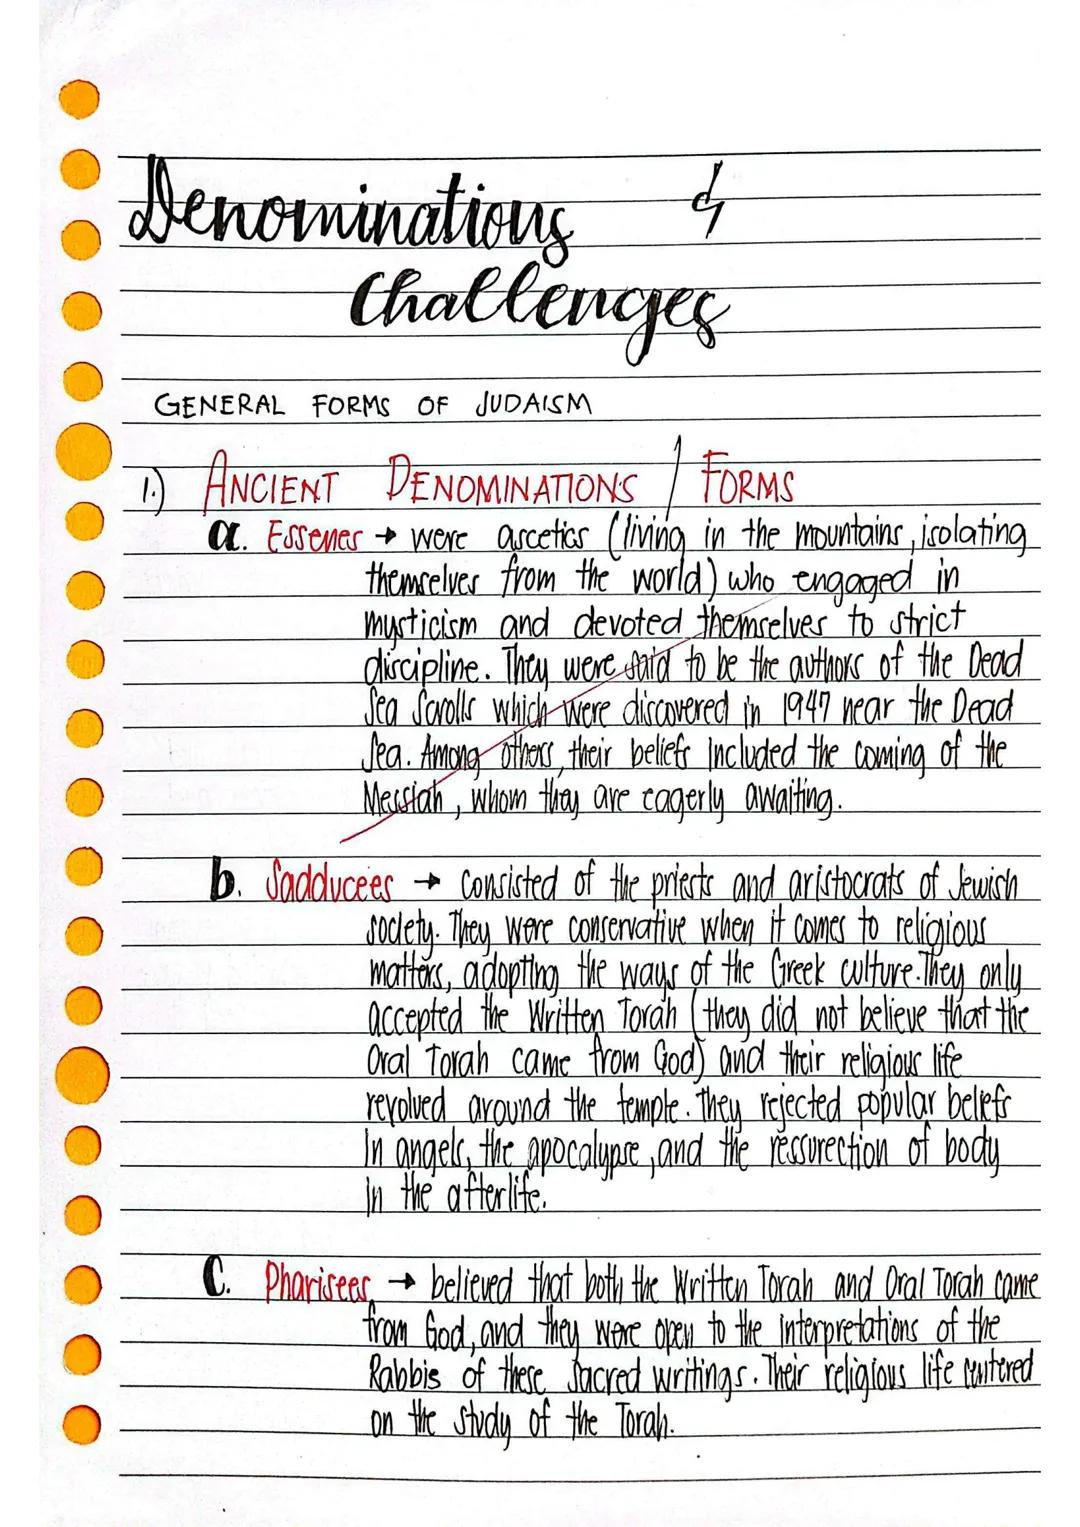 Denominations &
Challenges
GENERAL FORMS OF JUDAISM
1.) ANCIENT DENOMINATIONS / FORMS
a. Essenes → were ascetics (living in the mountains, isolating
themselves from the world) who engaged in
mysticism and devoted themselves to strict
discipline. They were said to be the authors of the Dead
Sea Scrolls which were discovered in 1947 near the Dead
Sea. Among others, their beliefs included the coming of the
Messiah, whom they are eagerly awaiting.
b. Sadducees → consisted of the priests and aristocrats of Jewish
society. They were conservative when it comes to religious
matters, adopting the ways of the Greek culture. They only
accepted the Written Torah (they did not believe that the
Oral Torah came from God) and their religious life
revolved around the temple. They rejected popular beliefs
in angels, the apocalypse, and the ressurection of body
in the afterlife.
C. Pharisees → believed that both the Written Torah and Oral Torah came
from God, and they were open to the interpretations of the
Rabbis of these sacred writings. Their religious life centered
on the study of the Torah.